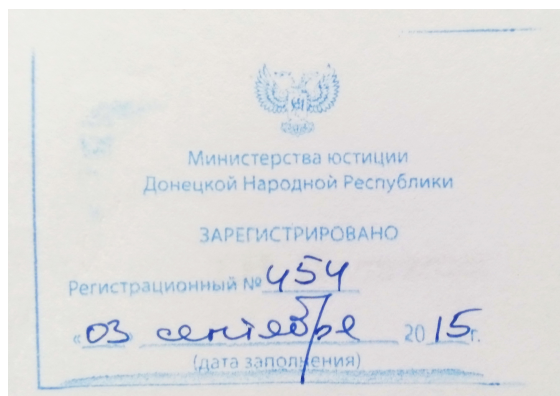 Министерства юстиции
Донецкой Народной Республики
ЗАРЕГИСТРИРОВАНО
Регистрационный № 454
«03» сентября 2015г.
(дата заполнения)